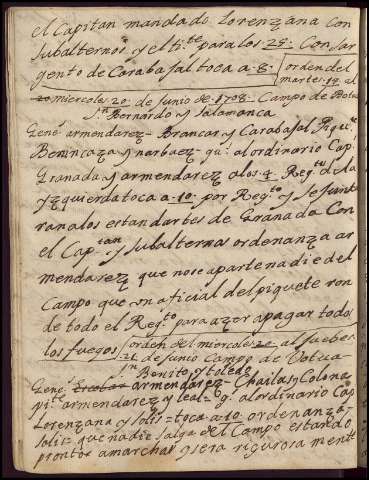 el Capitan mandado Lorenzana Con
Subalternos y el ti.te para los 28. Con Sar
gento de Carabajal toca a 8. orden del
martes 19. al
miercoles 20. de Junio de 1708. Campo de Botua
S.n Bernardo y Salamanca
Gene. armendarez - Brancas y Carabajal Piqu.te
Benincaza y narbaez gu.a al ordinario Cap.
Granada y armendarez a los 4. Reg.tos de la
yzquierda toca a 10. por Reg.to y se junt
ran a los estandartes de Granada Con
el Cap.tan y Subalternos ordenanza ar
mendarez que no se aparte nadie del
Campo que un oficial del piquete ron
de todo el Reg.to para azer apagar todos
los fuegos orden del miercoles 20. al Juebes
21. de Junio Campo de Votua
S.n Benito y toledo
Gene. armendarez - Chailas y Colona
pi.te armendarez y leal = g. al ordinario Cap
Lorenzana y Solis = toca a 10 ordenanza
Solis = que nadie salga del Campo estando
prontos a marchar y sera rigurosa mente